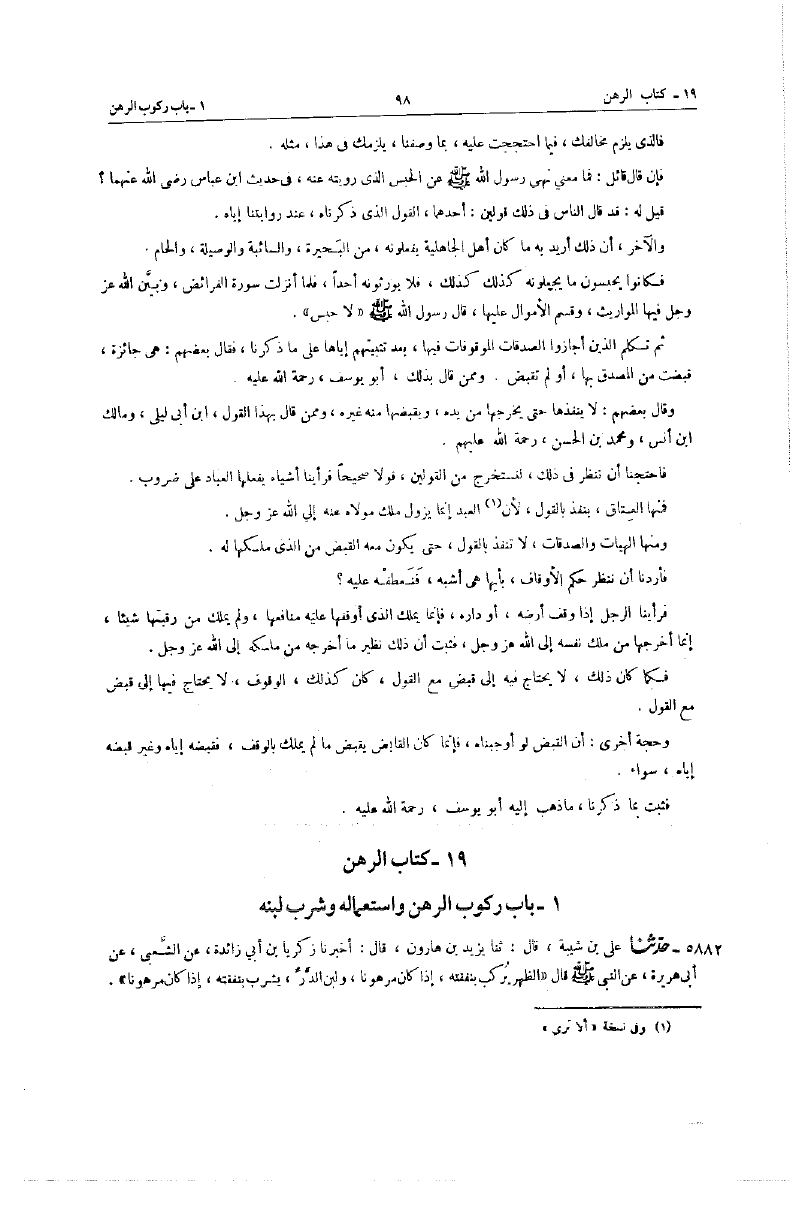 ١٩ - كتاب الرهن ٩٨ ١ - باب ركوب الرهن
فالذى يلزم مخالفك ، فيما احتججت عليه ، بما وصفنا ، يلزمك فى هذا ، مثله .
فإن قال قائل : فما معنى نهى رسول الله ﷺ عن الحبس الذى رويته عنه ، فى حديث ابن عباس رضى الله عنهما ؟
قيل له : قد قال الناس فى ذلك قولين : أحدهما ، القول الذى ذكرناه ، عند روايتنا إياه .
والآخر ، أن ذلك أريد به ما كان أهل الجاهلية يفعلونه ، من البَحيرة ، والسائبة والوصيلة ، والحام .
فكانوا يحبسون ما يجعلونه كذلك كذلك ، فلا يورثونه أحداً ، فلما أنزلت سورة الفرائض ، وبَيَّن الله عز
وجل فيها المواريث ، وقسم الأموال عليها ، قال رسول الله ﷺ « لا حبس » .
ثم تكلم الذين أجازوا الصدقات الموقوفات فيها ، بعد تثبيتهم إياها على ما ذكرنا ، فقال بعضهم : هى جائزة ،
قبضت من المصدق بها ، أو لم تقبض . وممن قال بذلك ، أبو يوسف ، رحمة الله عليه .
وقال بعضهم : لا ينفذها حتى يخرجها من يده ، ويقبضها منه غيره ، وممن قال بهذا القول ، ابن أبى ليلى ، ومالك
ابن أنس ، ومحمد بن الحسن ، رحمة الله عليهم .
فاحتجنا أن ننظر فى ذلك ، لنستخرج من القولين ، قولا صحيحاً فرأينا أشياء يفعلها العباد على ضروب .
فمنها العتاق ، ينفذ بالقول ، لأن(١) العبد إنما يزول ملك مولاه عنه إلى الله عز وجل .
ومنها الهبات والصدقات ، لا تنفذ بالقول ، حتى يكون معه القبض من الذى ملكها له .
فأردنا أن ننظر حكم الأوقاف ، بأيها هى أشبه ، فَنَعطفَه عليه ؟
فرأينا الرجل إذا وقف أرضه ، أو داره ، فإنما يملك الذى أوقفها عليه منافعها ، ولم يملك من رقبتها شيئا ،
إنما أخرجها من ملك نفسه إلى الله عز وجل ، فثبت أن ذلك نظير ما أخرجه من ملكه إلى الله عز وجل .
فكما كان ذلك ، لا يحتاج فيه إلى قبض مع القول ، كان كذلك ، الوقوف ، لا يحتاج فيها إلى قبض
مع القول .
وحجة أخرى : أن القبض لو أوجبناه ، فإنما كان القابض يقبض ما لم يملك بالوقف ، فقبضه إياه وغير قبضه
إياه ، سواء .
فثبت بما ذكرنا ، ما ذهب إليه أبو يوسف ، رحمة الله عليه .
١٩ - كتاب الرهن
١ - باب ركوب الرهن واستعماله وشرب لبنه
٥٨٨٢ - حدثنا على بن شيبة ، قال : ثنا يزيد بن هارون ، قال : أخبرنا زكريا بن أبي زائدة ، عن الشَّعبى ، عن
أبى هريرة ، عن النبى ﷺ قال «الظهر يُركب بنفقته ، إذا كان مرهونا ، ولبن الدَّرِّ ، يشرب بنفقته ، إذا كان مرهونا» .
(١) وفى نسخة « ألا ترى »